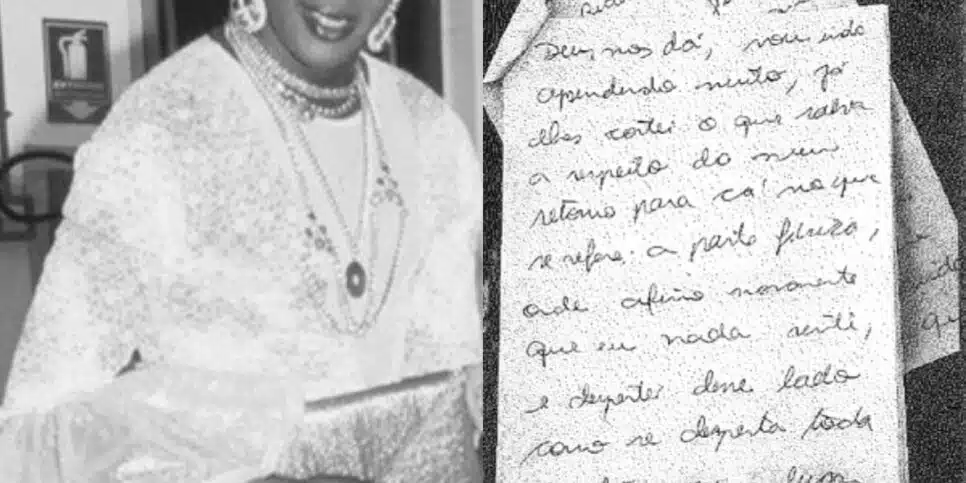 Deus nos dá, vem indo
aprendendo muito, já
lhes contei o que sabia
a respeito do meu
retorno para cá no que
se refere a parte física,
onde afirmo novamente
que eu nada senti,
e despertei desse lado
como se desperta toda